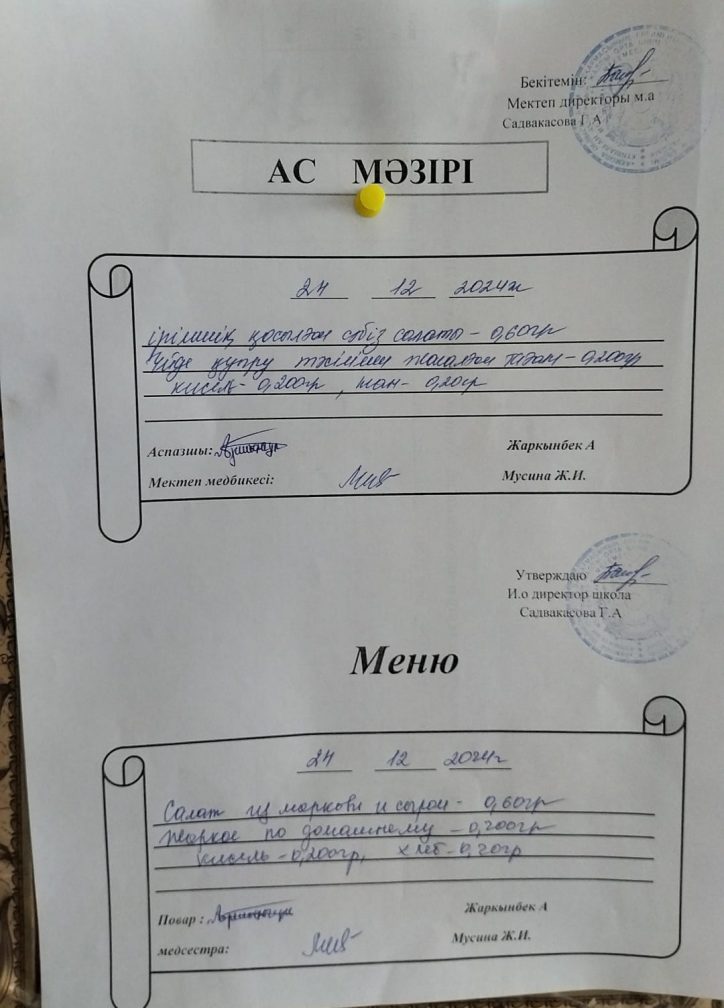 Бекітемін:
Мектеп директоры м.а
Садвакасова Г.А
АС МӘЗІРІ
24 12 2024ж
ірімшік қосылған сәбіз салаты - 0,60гр
Үйде қуыру тәсілімен жасалған тағам - 0,200гр
кисель - 0,200гр, нан - 0,20гр
Аспазшы: Жаркынбек А
Мектеп медбикесі: Мусина Ж.И.
Утверждаю
И.о директор школа
Садвакасова Г.А
Меню
24 12 2024г
Салат из моркови и сыром - 0,60гр
Жаркое по домашнему - 0,200гр
кисель - 0,200гр, хлеб - 0,20гр
Повар : Жаркынбек А
медсестра: Мусина Ж.И.